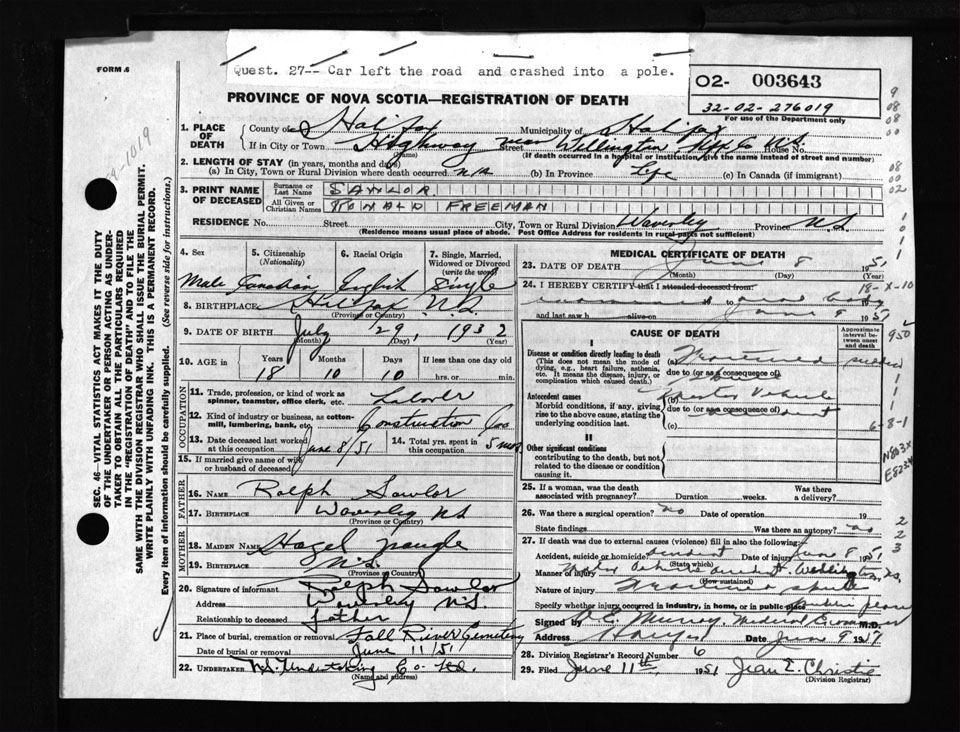 FORM 6
Quest. 27-- Car left the road and crashed into a pole.
O2- 003643
32-02-276019
For use of the Department only
PROVINCE OF NOVA SCOTIA—REGISTRATION OF DEATH
1. PLACE OF DEATH County of Halifax Municipality of Halifax
If in City or Town Highway near Wellington Hfx Co N.S. House No.
(Name) Street (If death occurred in a hospital or institution, give the name instead of street and number)
2. LENGTH OF STAY (in years, months and days)
(a) In City, Town or Rural Division where death occurred N/A (b) In Province Life (c) In Canada (if immigrant)
3. PRINT NAME OF DECEASED Surname or Last Name SAWLOR
All Given or Christian Names RONALD FREEMAN
RESIDENCE No. Street City, Town or Rural Division Waverley N.S.
(Residence means usual place of abode. Post Office Address for residents in rural parts not sufficient)
4. Sex 5. Citizenship (Nationality) 6. Racial Origin 7. Single, Married, Widowed or Divorced (write the word)
Male Canadian English Single
8. BIRTHPLACE Halifax N.S.
(Province or Country)
9. DATE OF BIRTH July 29, 1932
(Month) (Day) (Year)
10. AGE in Years Months Days If less than one day old
18 10 10 hrs. or min.
OCCUPATION
11. Trade, profession, or kind of work as spinner, teamster, office clerk, etc. Laborer
12. Kind of industry or business, as cotton-mill, lumbering, bank, etc. Construction Co.
13. Date deceased last worked at this occupation June 8/51 14. Total yrs. spent in this occupation 5 mos
15. If married give name of wife or husband of deceased
FATHER
16. NAME Ralph Sawlor
17. BIRTHPLACE Waverley NS
(Province or Country)
MOTHER
18. MAIDEN NAME Hazel Naugle
19. BIRTHPLACE N.S.
(Province or Country)
20. Signature of informant Ralph Sawlor
Address Waverley N.S.
Relationship to deceased Father
21. Place of burial, cremation or removal Fall River Cemetery
Date of burial or removal June 11/51
22. UNDERTAKER N.S. Undertaking Co. Ltd.
(Name and address)
MEDICAL CERTIFICATE OF DEATH
23. DATE OF DEATH June 8 1951
(Month) (Day) (Year)
24. I HEREBY CERTIFY that I attended deceased from:
18-X-10
and last saw h alive on June 9 1951
CAUSE OF DEATH
Approximate interval between onset and death
I
Disease or condition directly leading to death
(This does not mean the mode of dying, e.g., heart failure, asthenia, etc. It means the disease, injury, or complication which caused death.)
(a)
due to (or as a consequence of)
Antecedent causes
Morbid conditions, if any, giving rise to the above cause, stating the underlying condition last.
(b) Motor Vehicle
due to (or as a consequence of)
(c)
6-8-1
II
Other significant conditions
contributing to the death, but not related to the disease or condition causing it.
N803X
25. If a woman, was the death associated with pregnancy? Duration weeks. Was there a delivery?
26. Was there a surgical operation? no Date of operation 19
State findings Was there an autopsy? no
27. If death was due to external causes (violence) fill in also the following:
Accident, suicide or homicide? Accident Date of injury June 8 1951
(State which)
Manner of injury Motor vehicle accident Wellington, NS
(How sustained)
Nature of injury
Specify whether injury occurred in industry, in home, or in public place Public place
Signed by Murray, Medical Examiner M.D.
Address Date June 9 19
28. Division Registrar's Record Number 6
29. Filed June 11th, 1951 Jean E. Christie
(Division Registrar)
SEC. 46—VITAL STATISTICS ACT MAKES IT THE DUTY
OF THE UNDERTAKER OR PERSON ACTING AS UNDER-
TAKER TO OBTAIN ALL THE PARTICULARS REQUIRED
IN THE "REGISTRATION OF DEATH" AND TO FILE THE
SAME WITH THE DIVISION REGISTRAR WHO SHALL ISSUE THE BURIAL PERMIT.
WRITE PLAINLY WITH UNFADING INK. THIS IS A PERMANENT RECORD.
Every item of information should be carefully supplied. (See reverse side for instructions.)